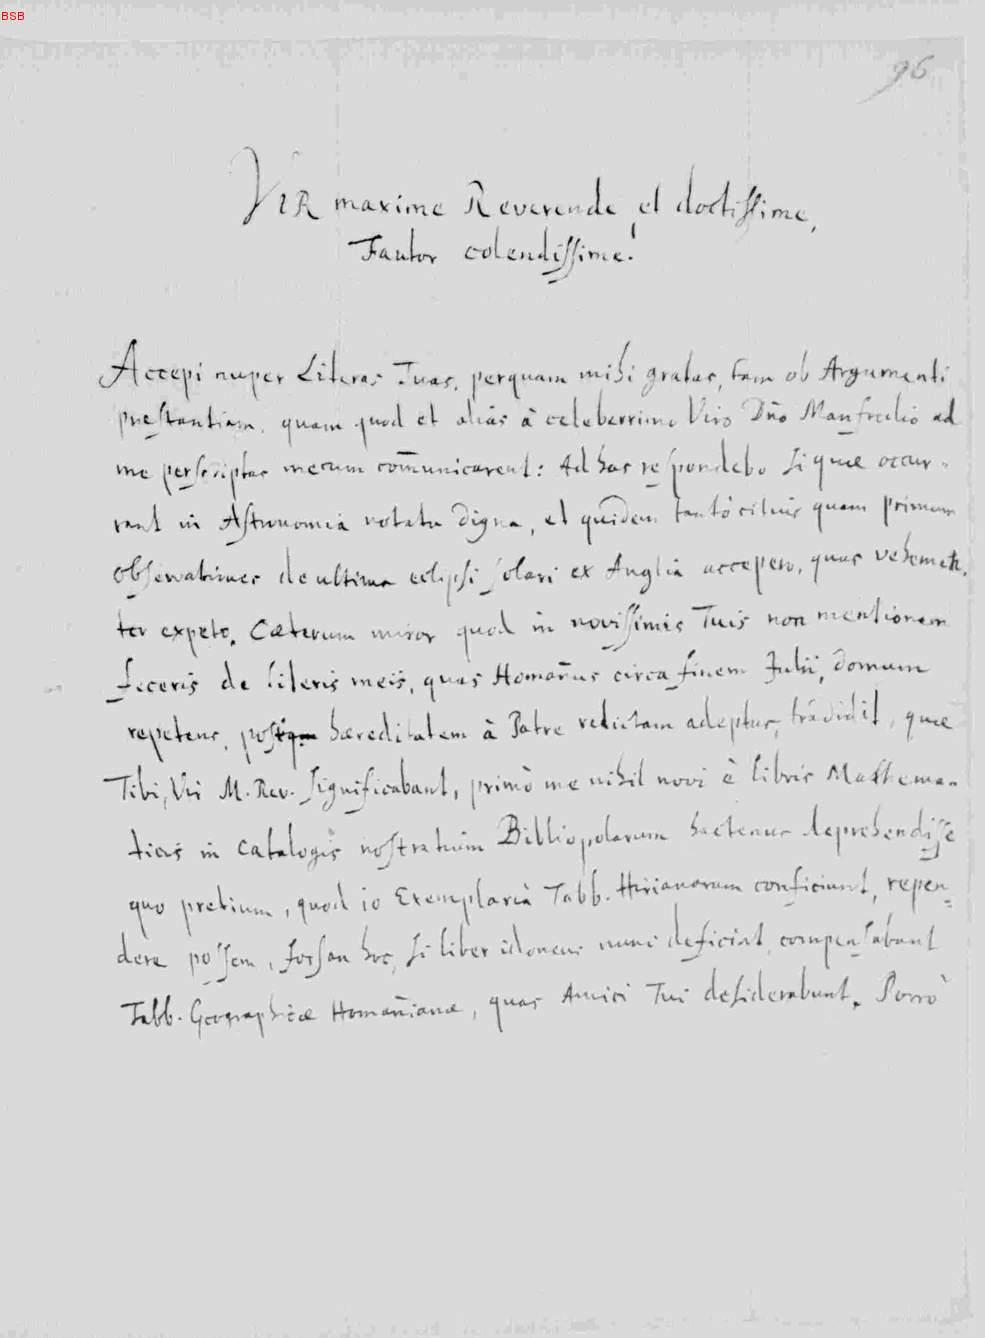 BSB
96
VIR maxime Reverende et doctissime,
Fautor colendissime!
Accepi nuper Literas Tuas, perquam mihi gratas, tam ob Argumenti
præstantiam, quam quod et alias à celeberrimo Viro Dño Manfredio ad
me perscriptas mecum com̄unicarent: Ad has respondebo si quæ occur-
rant in Astronomia notatu digna, et quidem tantò citius quam primum
observationes de ultima eclipsi solari ex Anglia accepero, quas vehemen-
ter expeto. Cæterum miror quod in novissimis Tuis non mentionem
feceris de literis meis, quas Homan̄us circa finem Julii, domum
repetens, postq̃m hæreditatem à Patre relictam adeptus, tradidit, quæ
Tibi, Vir M. Rev. significabant, primò me nihil novi è libris Mathema-
ticis in catalogis nostratium Bibliopolarum hactenus deprehendisse
quo pretium, quod 10 Exemplaria Tabb. Hirianarum conficiunt, repen=
dere possem, forsan hoc, si liber idoneus nunc deficiat, compensabunt
Tabb. Geographicæ Homan̄ianæ, quas Amici Tui desiderabunt. Porrò